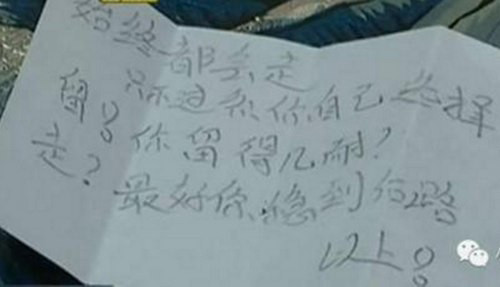 始终都会走
只不过系你自己选择
留！你留得几耐？
走？最好你稳到路
以上！